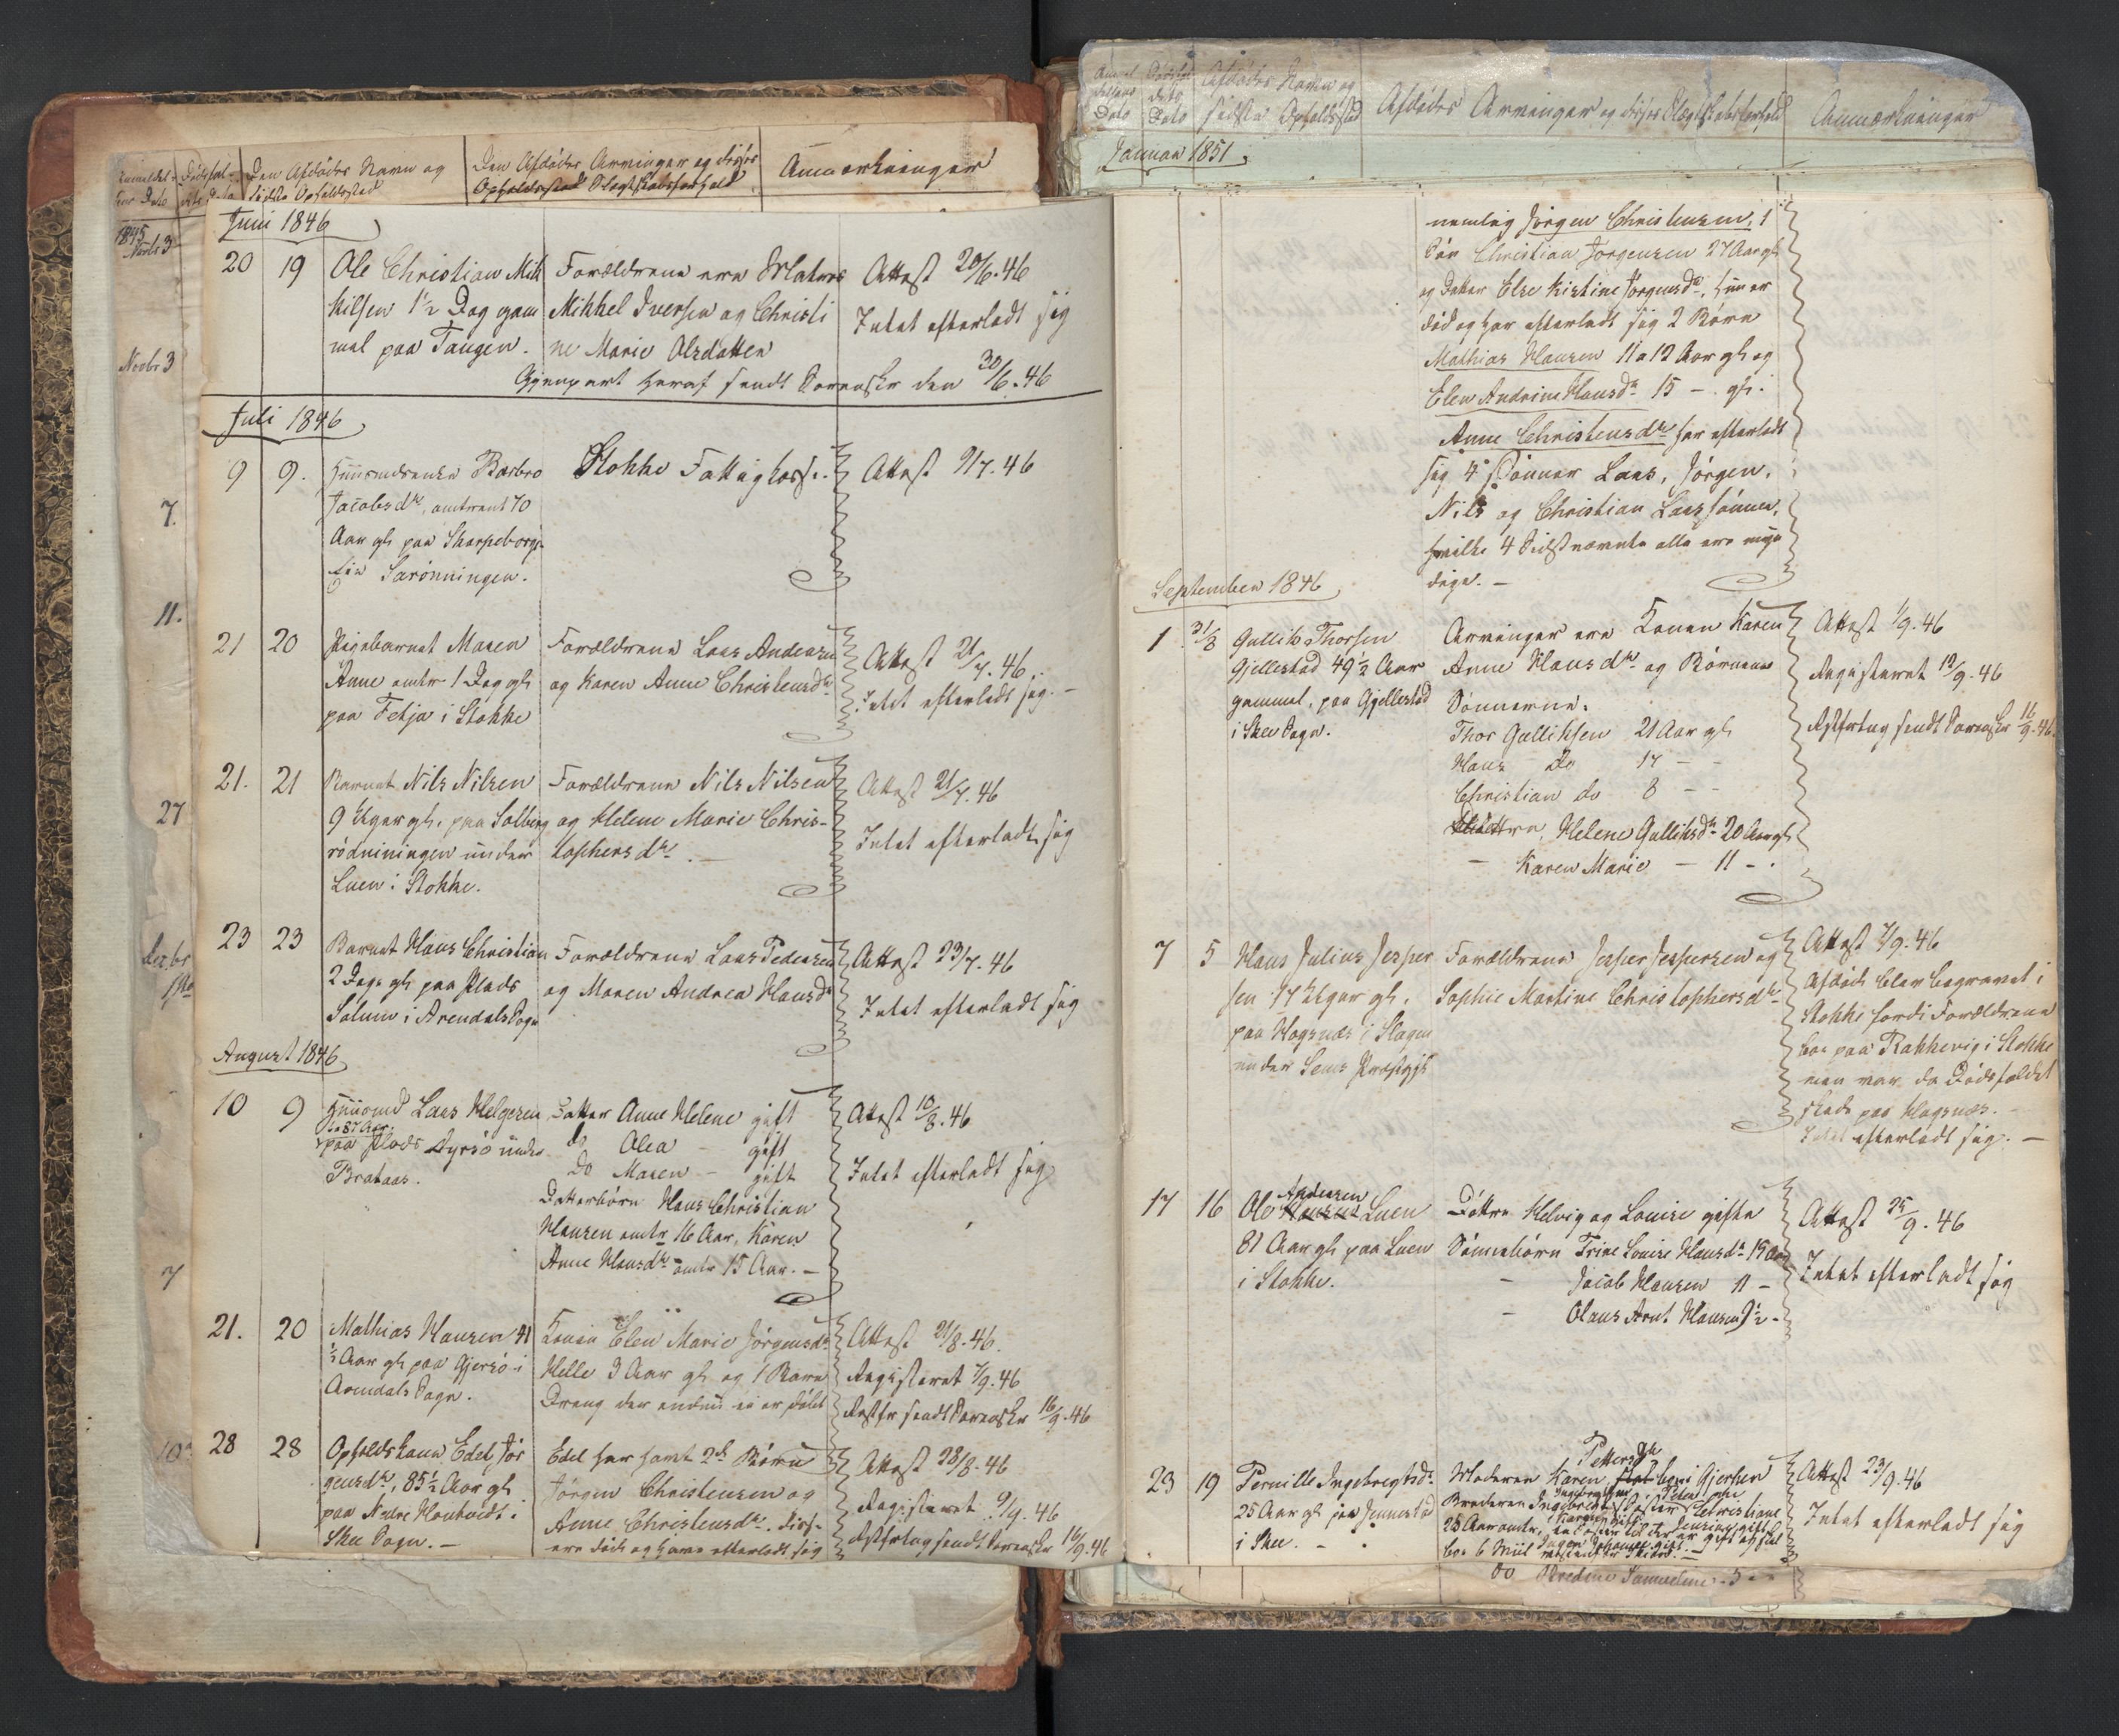 Den Afdødes Navn og
sidste Opholdssted
Den Afdødes Arvinger og disses
Opholdssted Slægtskabsforhold
Anmærkninger
1845
Novbr 3
Novbr 3
7.
11.
27
7
Juni 1846
20 19 Ole Christian Mik
kelsen 1½ Dag gam
mel paa Tangen.
Forældrene ere Matros
Mikkel Iversen og Christi
ne Marie Olsdatter
Attest 20/6.46
Intet efterladt sig
Gjenpart heraf sendt Sorenskr den 30/6.46
Juli 1846
9 9. Huusmandsenke Barbro
Jacobsdr, omtrent 70
Aar gl paa
Sarønningen.
Stokke Fattigkasse.
Attest 9/7.46
21 20 Pigebarnet Maren
Anne omtr 1 Dag gl
paa Fekja i Stokke
Forældrene Lars Andersen
og Karen Anne Christensdr
Attest 21/7.46.
Intet efterladt sig. –
21. 21 Barnet Nils Nilsen
9 Uger gl. paa Solberg
rødningen under
Luen i Stokke.
Forældrene Nils Nilsen
og Helene Marie Chris-
tophersdr. –
Attest 21/7.46
Intet efterladt sig
23 23 Barnet Hans Christian
2 Dage gl paa Plads
Solum i Arendals Sogn
Forældrene Lars Pedersen
og Maren Andrea Hansdr
Attest 23/7.46
Intet efterladt sig
August 1846
10 9 Huusmd Lars Helgesen
87 Aar
paa Plads Dyrsø under
Brataas.
Datter Anne Helene gift
do Olea – gift
do Maren – gift
Datterbørn Hans Christian
Hansen omtr 16 Aar, Karen
Anne Hansdr omtr 15 Aar. –
Attest 10/8.46
Intet efterladt sig
21. 20 Mathias Hansen 41
½ Aar gl paa Gjersø i
Arendals Sogn.
Konen Elen Marie Jørgensdr
Helle 3 Aar gl og 1 Barn
Dreng der endnu ei er døbt
Attest 21/8.46.
Registeret 7/9.46
Restfr sendt Sorenskr 16/9.46
28 28 Opholdskone Edel Jør
gensdr, 85½ Aar gl
paa Nedre Hontvedt i
Skee Sogn. –
Edel har havt 2de Børn
Jørgen Christensen og
Anne Christensdr. disse
ere døde og have efterladt sig
Attest 28/8.46
Registeret 9/9.46
Restfortug sendt Sorenskr 16/9.46
Dato
Afdødes Navn og
sidste Opholdssted
Afdødes Arvinger og disses Slægtskabsforhold
Anmærkninger
Januar 1851
nemlig Jørgen Christensen, 1
Søn Christian Jørgensen 27 Aar gl
og Datter Else Kistine Jørgensdr, hun er
død og har efterladt sig 2 Børn
Mathias Hansen 11 a 12 Aar gl og
Elen Andrine Hansdr 15 – gl.
Anne Christensdr har efterladt
sig 4 Sønner Lars, Jørgen,
Nils og Christian Larssønner,
hvilke 4 Sidstnævnte alle ere myn
dige. –
September 1846
1 31/8 Gullik Thorsen
Gjellestad 49½ Aar
gammel, paa Gjellestad
i Skee Sogn.
Arvinger ere Konen Karen
Anne Hansdr og Børnene
Sønnerne:
Thor Gulliksen 21 Aar gl
Hans do 17 – –
Christian do 8 – –
Helene Gulliksdr 20 Aar gl
– Karen Marie – 11 – .
Attest 1/9.46
Registeret 12/9.46
Restfortug sendt Sorenskr 16/9.46.
7 5 Hans Julius Jesper
sen 17 Uger gl.
paa Hogsnæs i Slagen
under Sems Præstgjl
Forældrene Jesper Jespersen og
Sophie Martine Christophersdr
Attest 7/9.46
Afdøde blev begravet i
Stokke fordi Forældrene
boe paa Rakkevig i Stokke
men var da Dødsfaldet
skede paa Hogsnæs. –
Intet efterladt sig. –
17 16 Ole Andersen Luen
81 Aar gl paa Luen
i Stokke.
Døttre Helvig og Louise gifte
Sønnebørn Trine Louise Hansdr 15 Aar
– Jacob Hansen 11 –
– Olaus Arnt Hansen 9½ –
Attest 25/9.46
Intet efterladt sig
23 19 Pernille Ingebregtsdr
25 Aar gl paa Jennestad
i Skee. –
Pettersdr
Moderen Karen boe i Gjerpen
Broderen Ingebregt Søster Christiane
25 Aar omtr,
boe 6 Miil
Attest 23/9.46
Intet efterladt sig
do